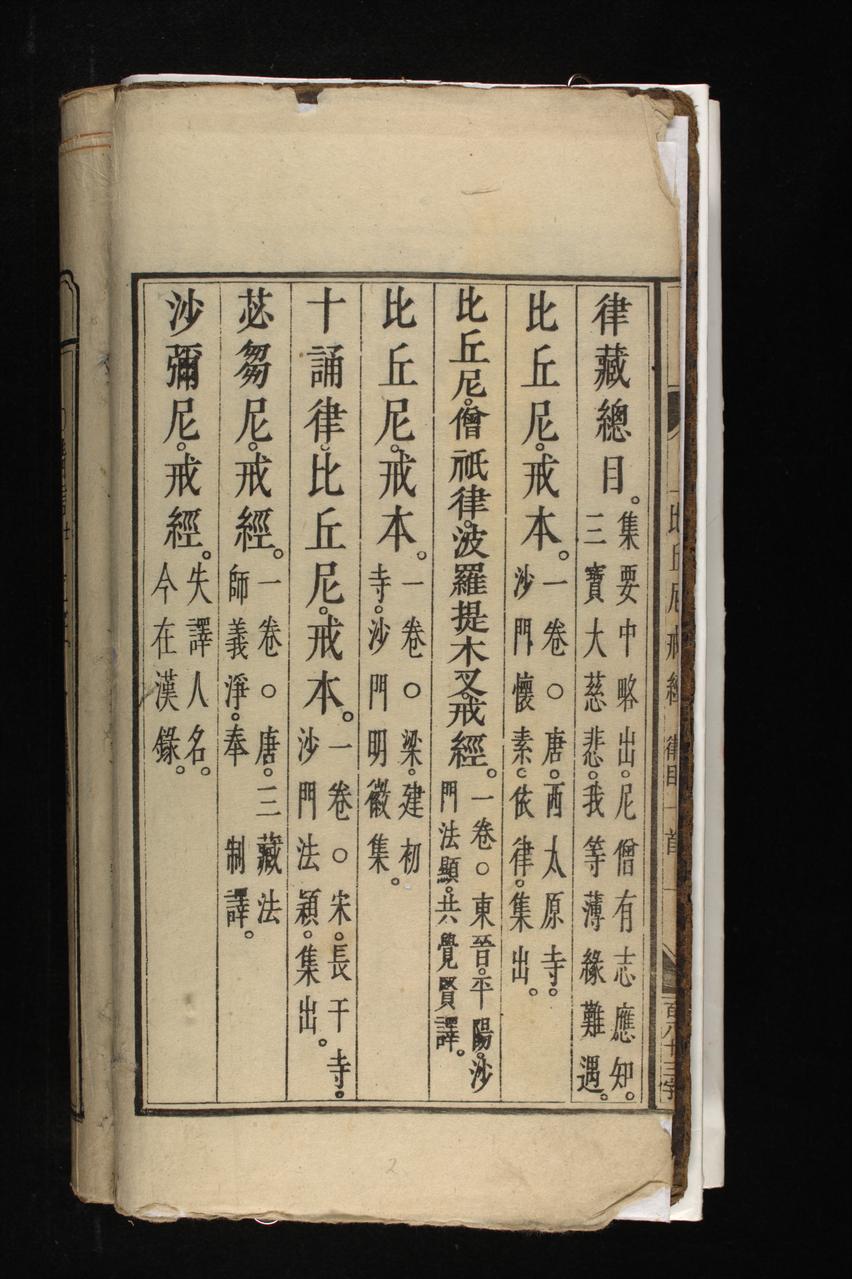 律藏總目。集要中略出。尼僧有志應知。
三寶大慈悲。我等薄緣難遇。
比丘尼。戒本。一卷○唐。西太原寺。
沙門懷素。依律。集出。
比丘尼。僧祇律。波羅提木叉。戒經。一卷○東晉。平陽。沙
門法顯。共覺賢譯。
比丘尼。戒本。一卷○梁。建初
寺。沙門明徽集。
十誦律。比丘尼。戒本。一卷○宋。長干寺。
沙門法穎。集出。
苾芻尼。戒經。一卷○唐。三藏法
師義淨。奉 制譯。
沙彌尼。戒經。失譯人名。
今在漢錄。
2